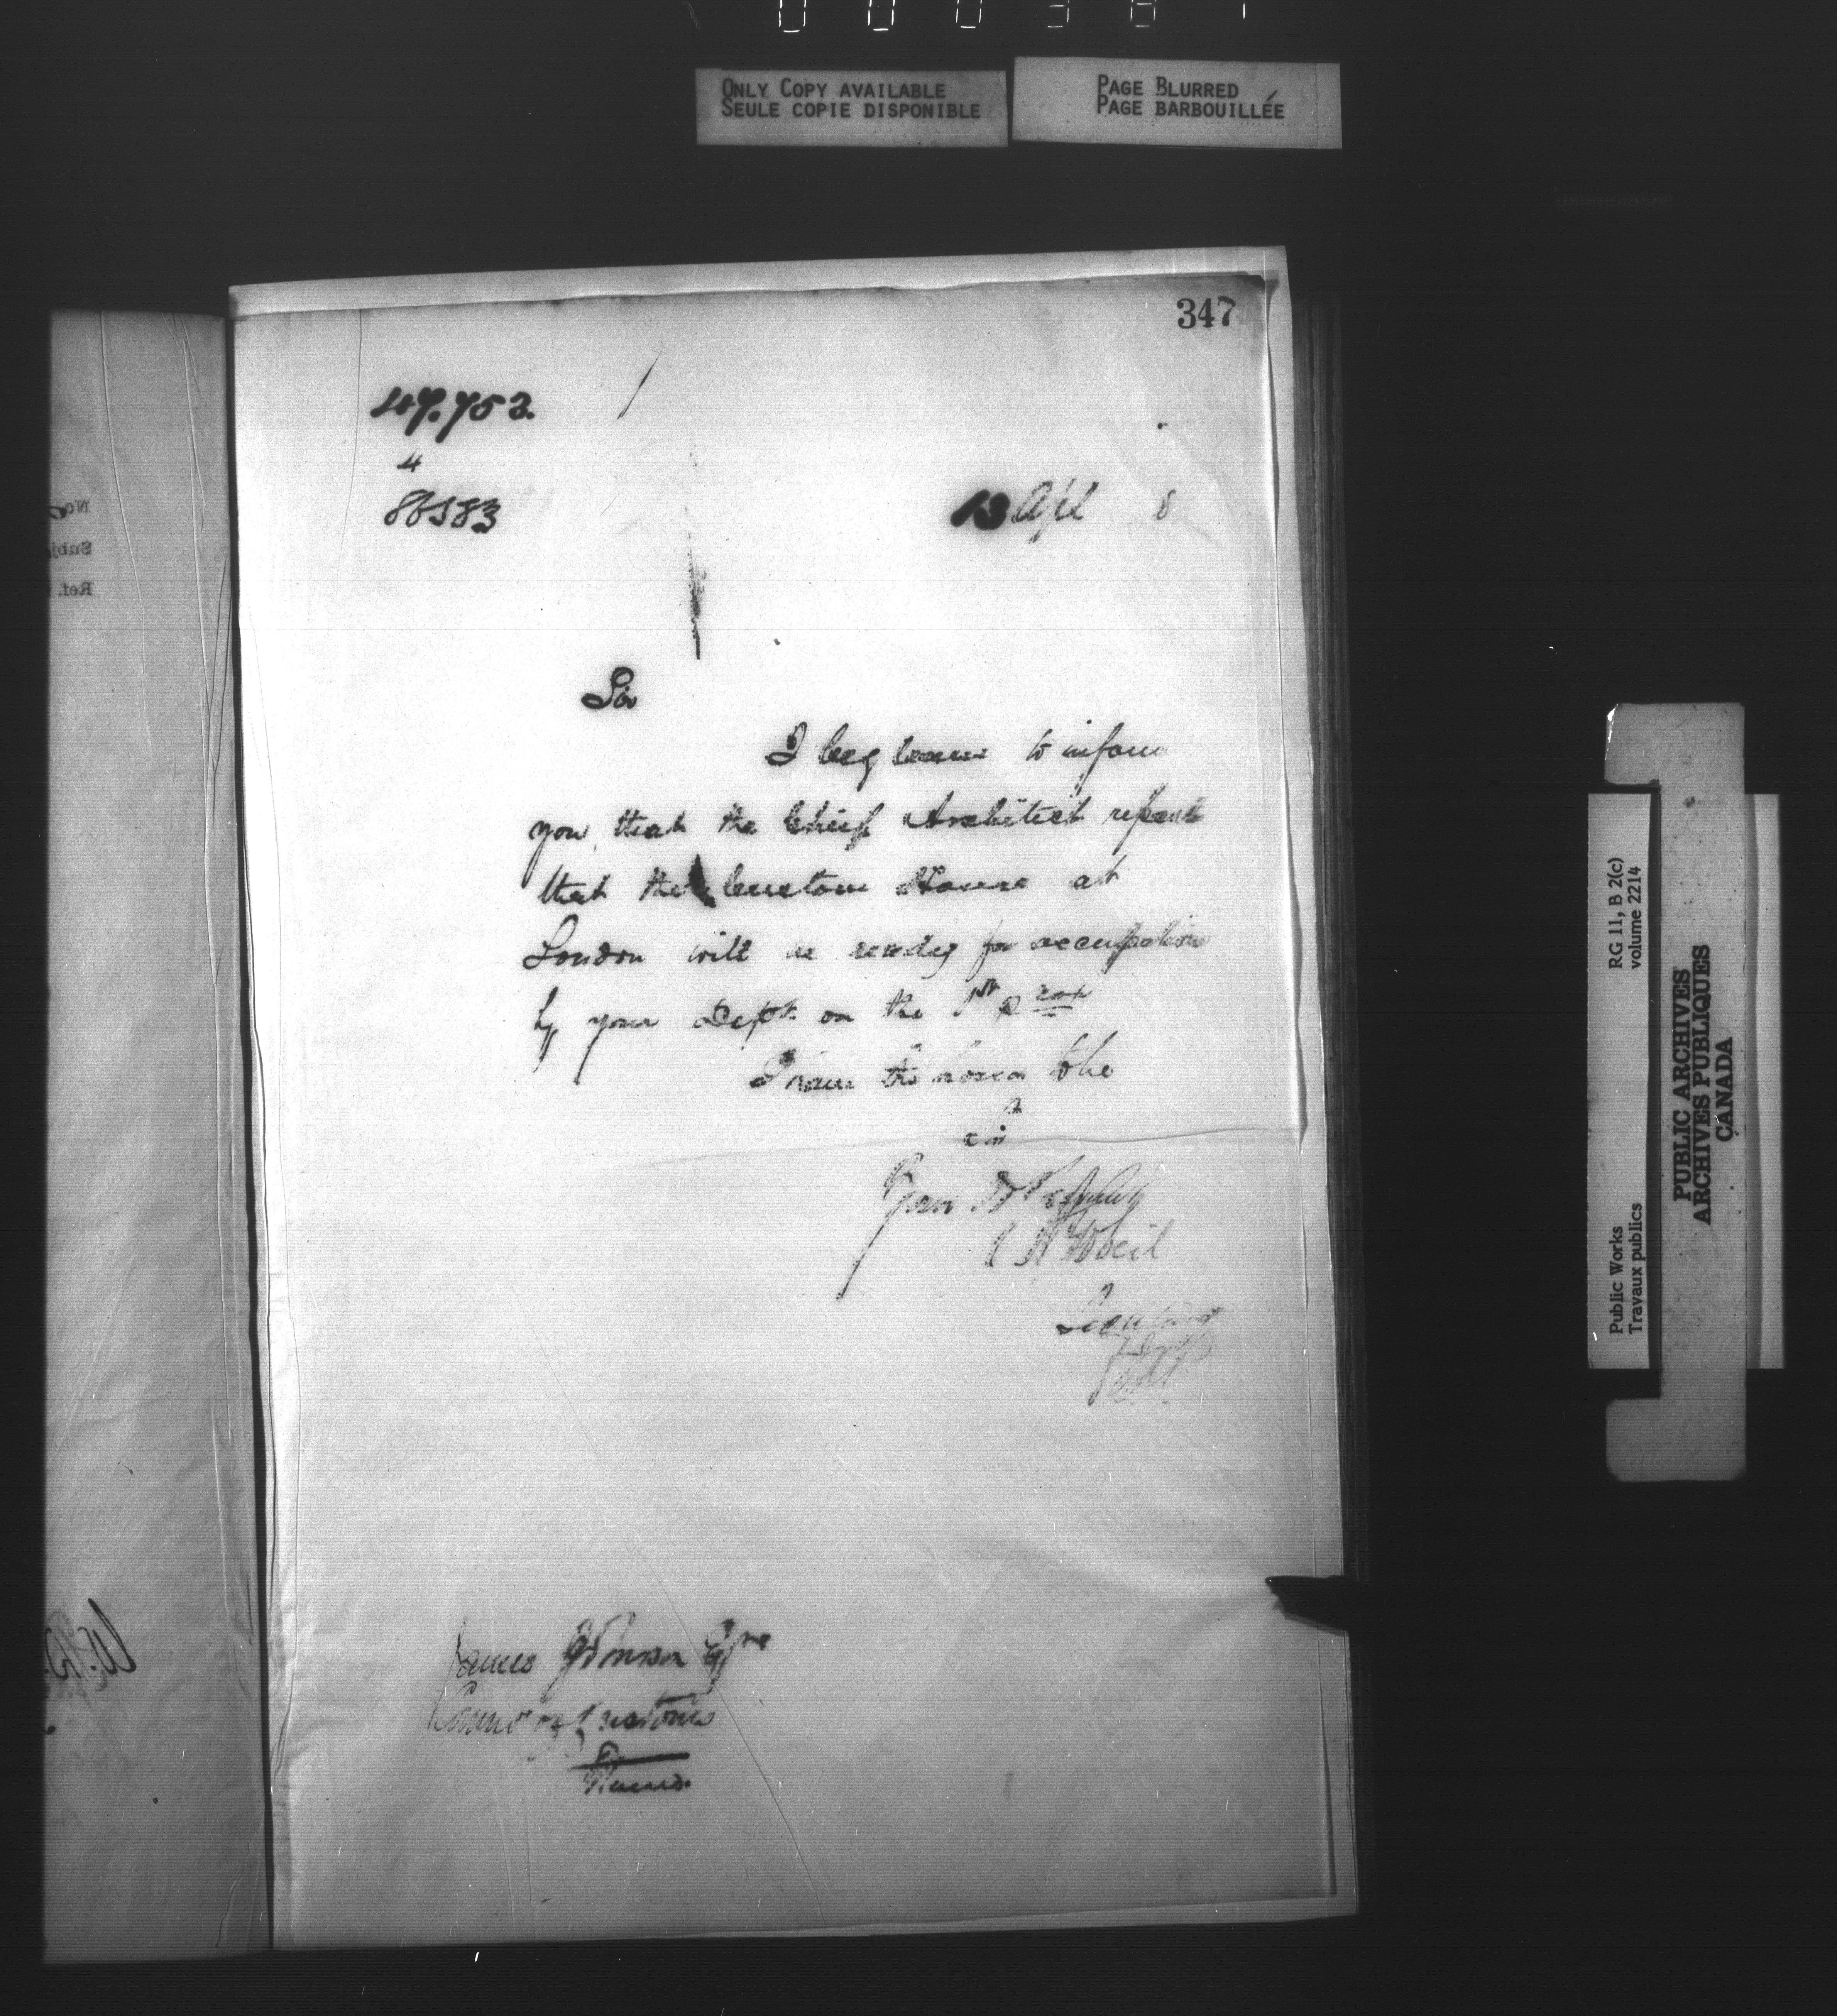 ONLY COPY AVAILABLE
SEULE COPIE DISPONIBLE
PAGE BLURRED
PAGE BARBOUILLÉE
347
47.753.
4
86583
13 Apl 8
Sir
I beg leave to inform
you that the Chief Architect reports
that the Custom House at
London will be ready for occupation
by your Dept. on the 1st prox
I have the honor to be
Sir
Your
Secretary
James Johnson Esqre
Commr of Customs
Ottawa.
RG 11, B 2(c)
volume 2214
Public Works
Travaux publics
PUBLIC ARCHIVES
ARCHIVES PUBLIQUES
CANADA